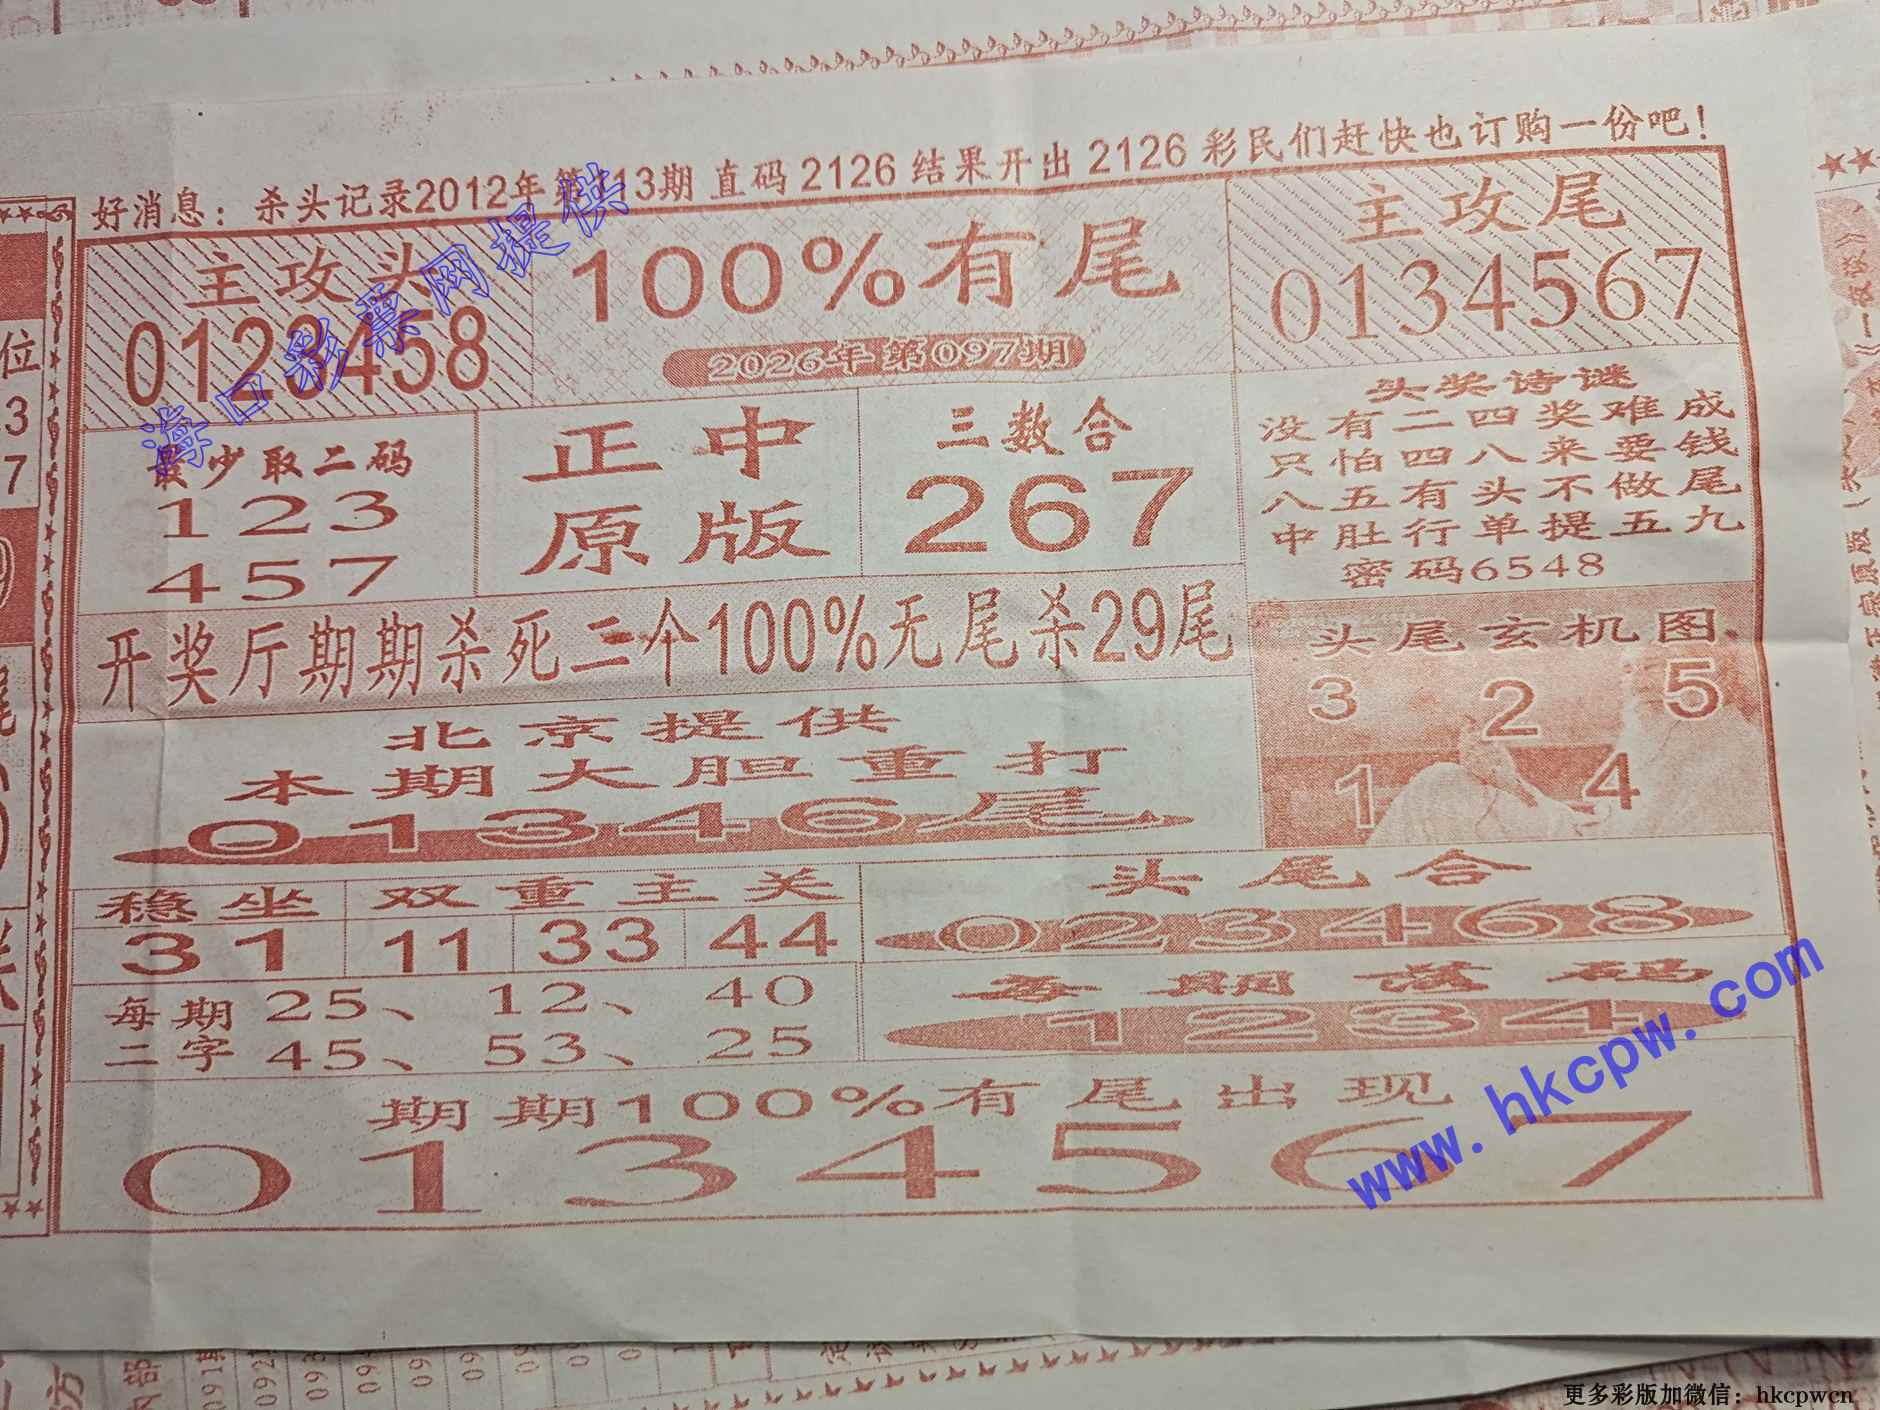 好消息：杀头记录2012年第113期 直码 2126 结果开出 2126 彩民们赶快也订购一份吧！
主攻头
0123458
100%有尾
2026年第097期
主攻尾
0134567
最少取二码
123
457
正中
原版
三数合
267
头奖诗谜
没有二四奖难成
只怕四八来要钱
八五有头不做尾
中肚行单提五九
密码6548
开奖厅期期杀死二个100%无尾杀29尾
头尾玄机图
3 2 5
1 4
北京提供
本期大胆重打
01346尾
稳坐 双重主关
31 11 33 44
头尾合
023468
每期
二字
25、 12、 40
45、 53、 25
每期落码
1234
期期100%有尾出现
0134567
海口彩票网提供
www.hkcpw.com
更多彩版加微信：hkcpwcn